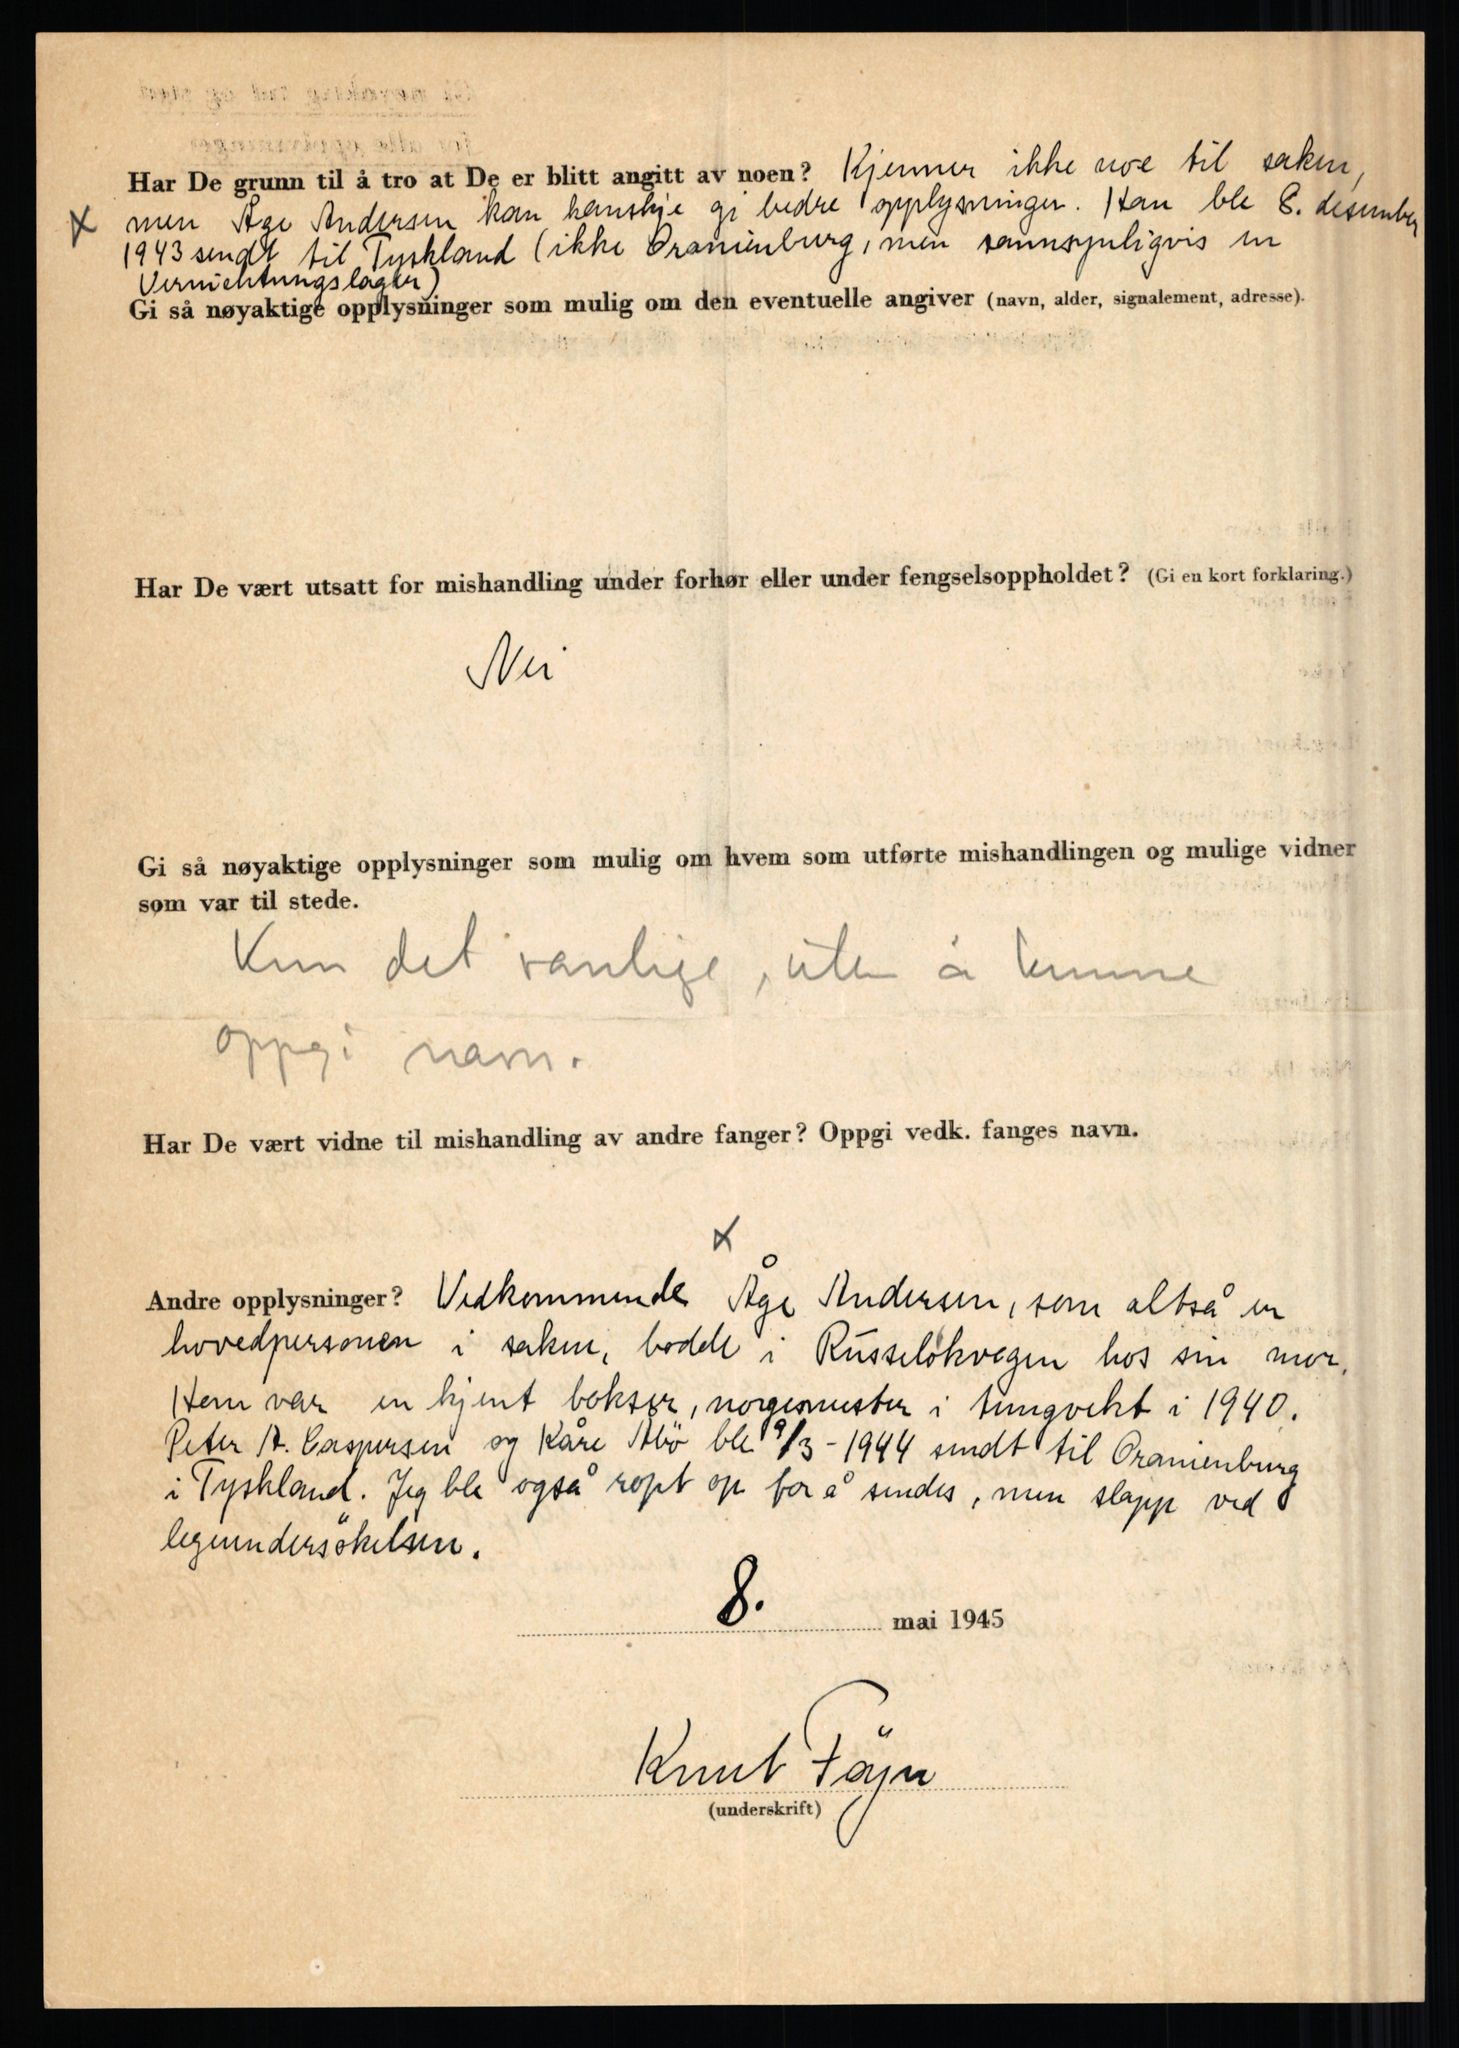 Har De grunn til å tro at De er blitt angitt av noen? Kjenner ikke noe til saken,
x men Åge Andersen kan kanskje gi bedre opplysninger. Han ble 8. desember
1943 sendt til Tyskland (ikke Oranienburg, men sannsynligvis en
Vernichtungslager)
Gi så nøyaktige opplysninger som mulig om den eventuelle angiver (navn, alder, signalement, adresse).
Har De vært utsatt for mishandling under forhør eller under fengselsoppholdet? (Gi en kort forklaring.)
Nei
Gi så nøyaktige opplysninger som mulig om hvem som utførte mishandlingen og mulige vidner
som var til stede.
Kun det vanlige, uten å kunne
oppgi navn.
Har De vært vidne til mishandling av andre fanger? Oppgi vedk. fanges navn.
x
Andre opplysninger? Vedkommende Åge Andersen, som altså er
hovedpersonen i saken, bodde i Russeløkvegen hos sin mor.
Han var en kjent bokser, norgesmester i tungvekt i 1940.
Peter A. Caspersen og Kåre Abö ble 9/3-1944 sendt til Oranienburg
i Tyskland. Jeg ble også ropt op for å sendes, men slapp ved
legeundersökelsen.
8. mai 1945
Knut Föyn
(underskrift)